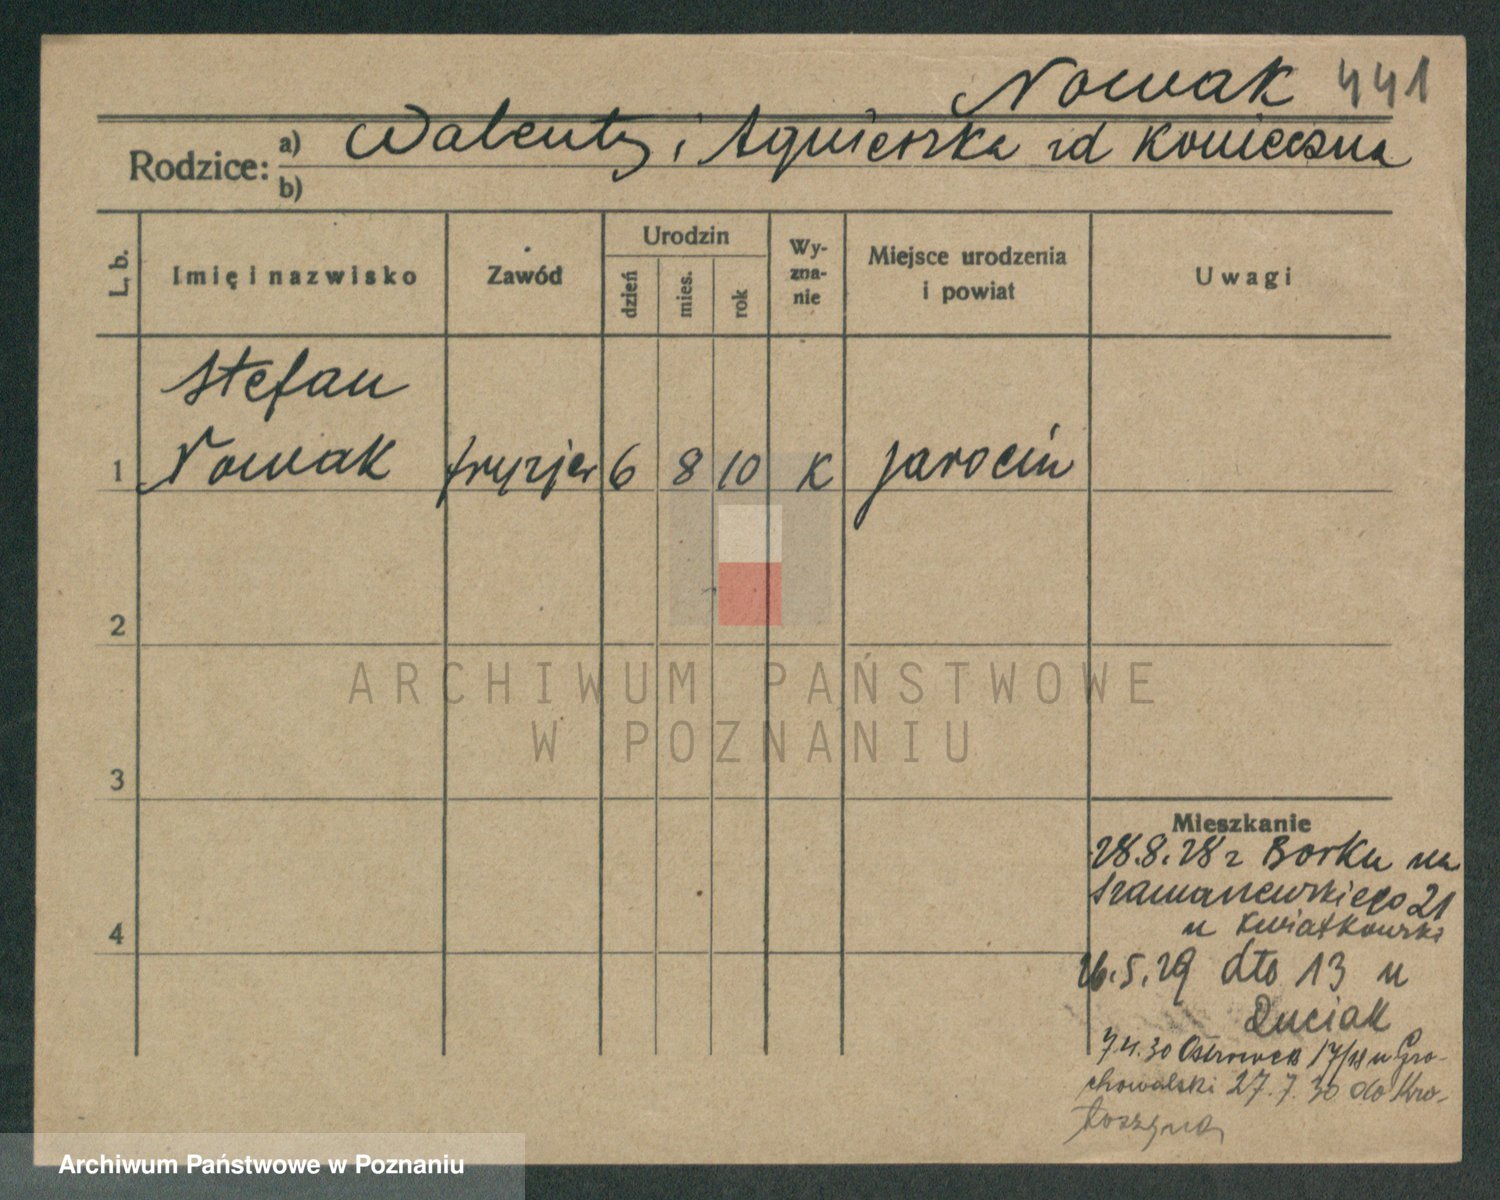 Nowak 441
Rodzice: a) Walenty i Agnieszka zd Konieczna
b)
L. b.
Imię i nazwisko
Zawód
Urodzin
dzień
mies.
rok
Wy-
zna-
nie
Miejsce urodzenia
i powiat
Uwagi
Stefan
1 Nowak fryzjer 6 8 10 K Jarocin
2
ARCHIWUM PAŃSTWOWE
W POZNANIU
3
Mieszkanie
28.8.28 z Borku na
4
u Kwiatkowski
26.5.29 dto 13 u
Duciak
7.4.30 Ostrówek 17/18 u Gro-
chowalski 27.7.30 do Kro-
toszyna
Archiwum Państwowe w Poznaniu